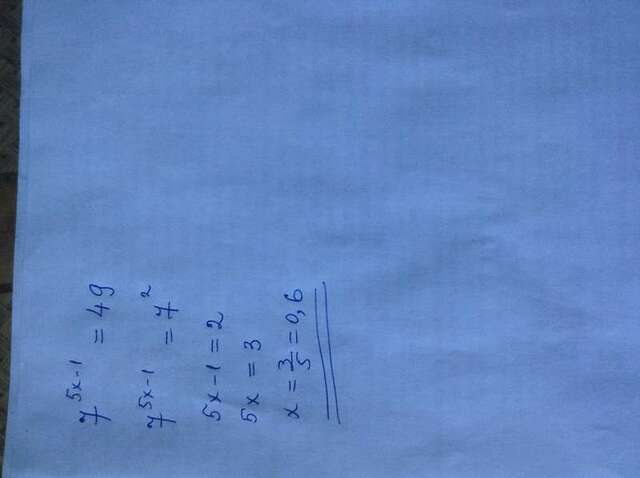 7^{5x-1} = 49
7^{5x-1} = 7^2
5x-1 = 2
5x = 3
x = \frac{3}{5} = 0,6